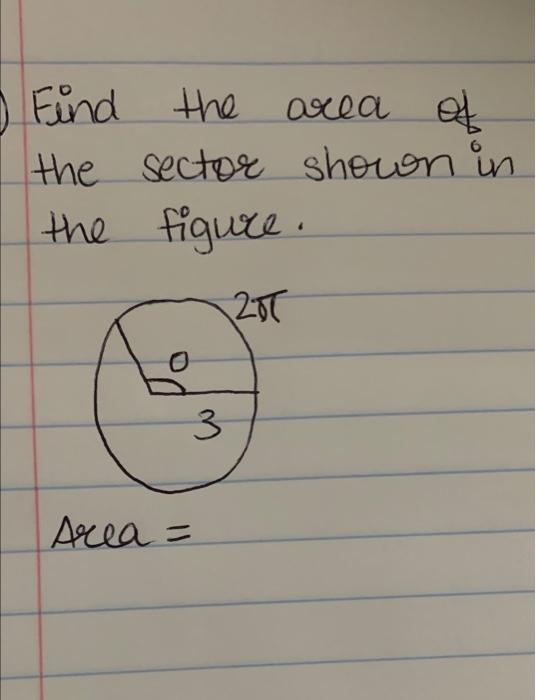 ) Find the area of
the sector shown in
the figure.
2π
θ
3
Area =